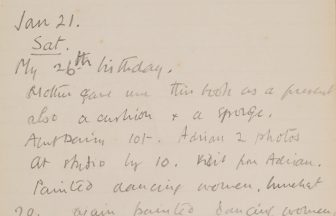 Jan 21.
Sat.
My 26th birthday.
Mother gave me this book as a present
also a cushion & a sponge.
Aunt 10/-. Adrian 2 photos
At studio by 10. Visit from Adrian.
Painted dancing women.
again painted dancing women.